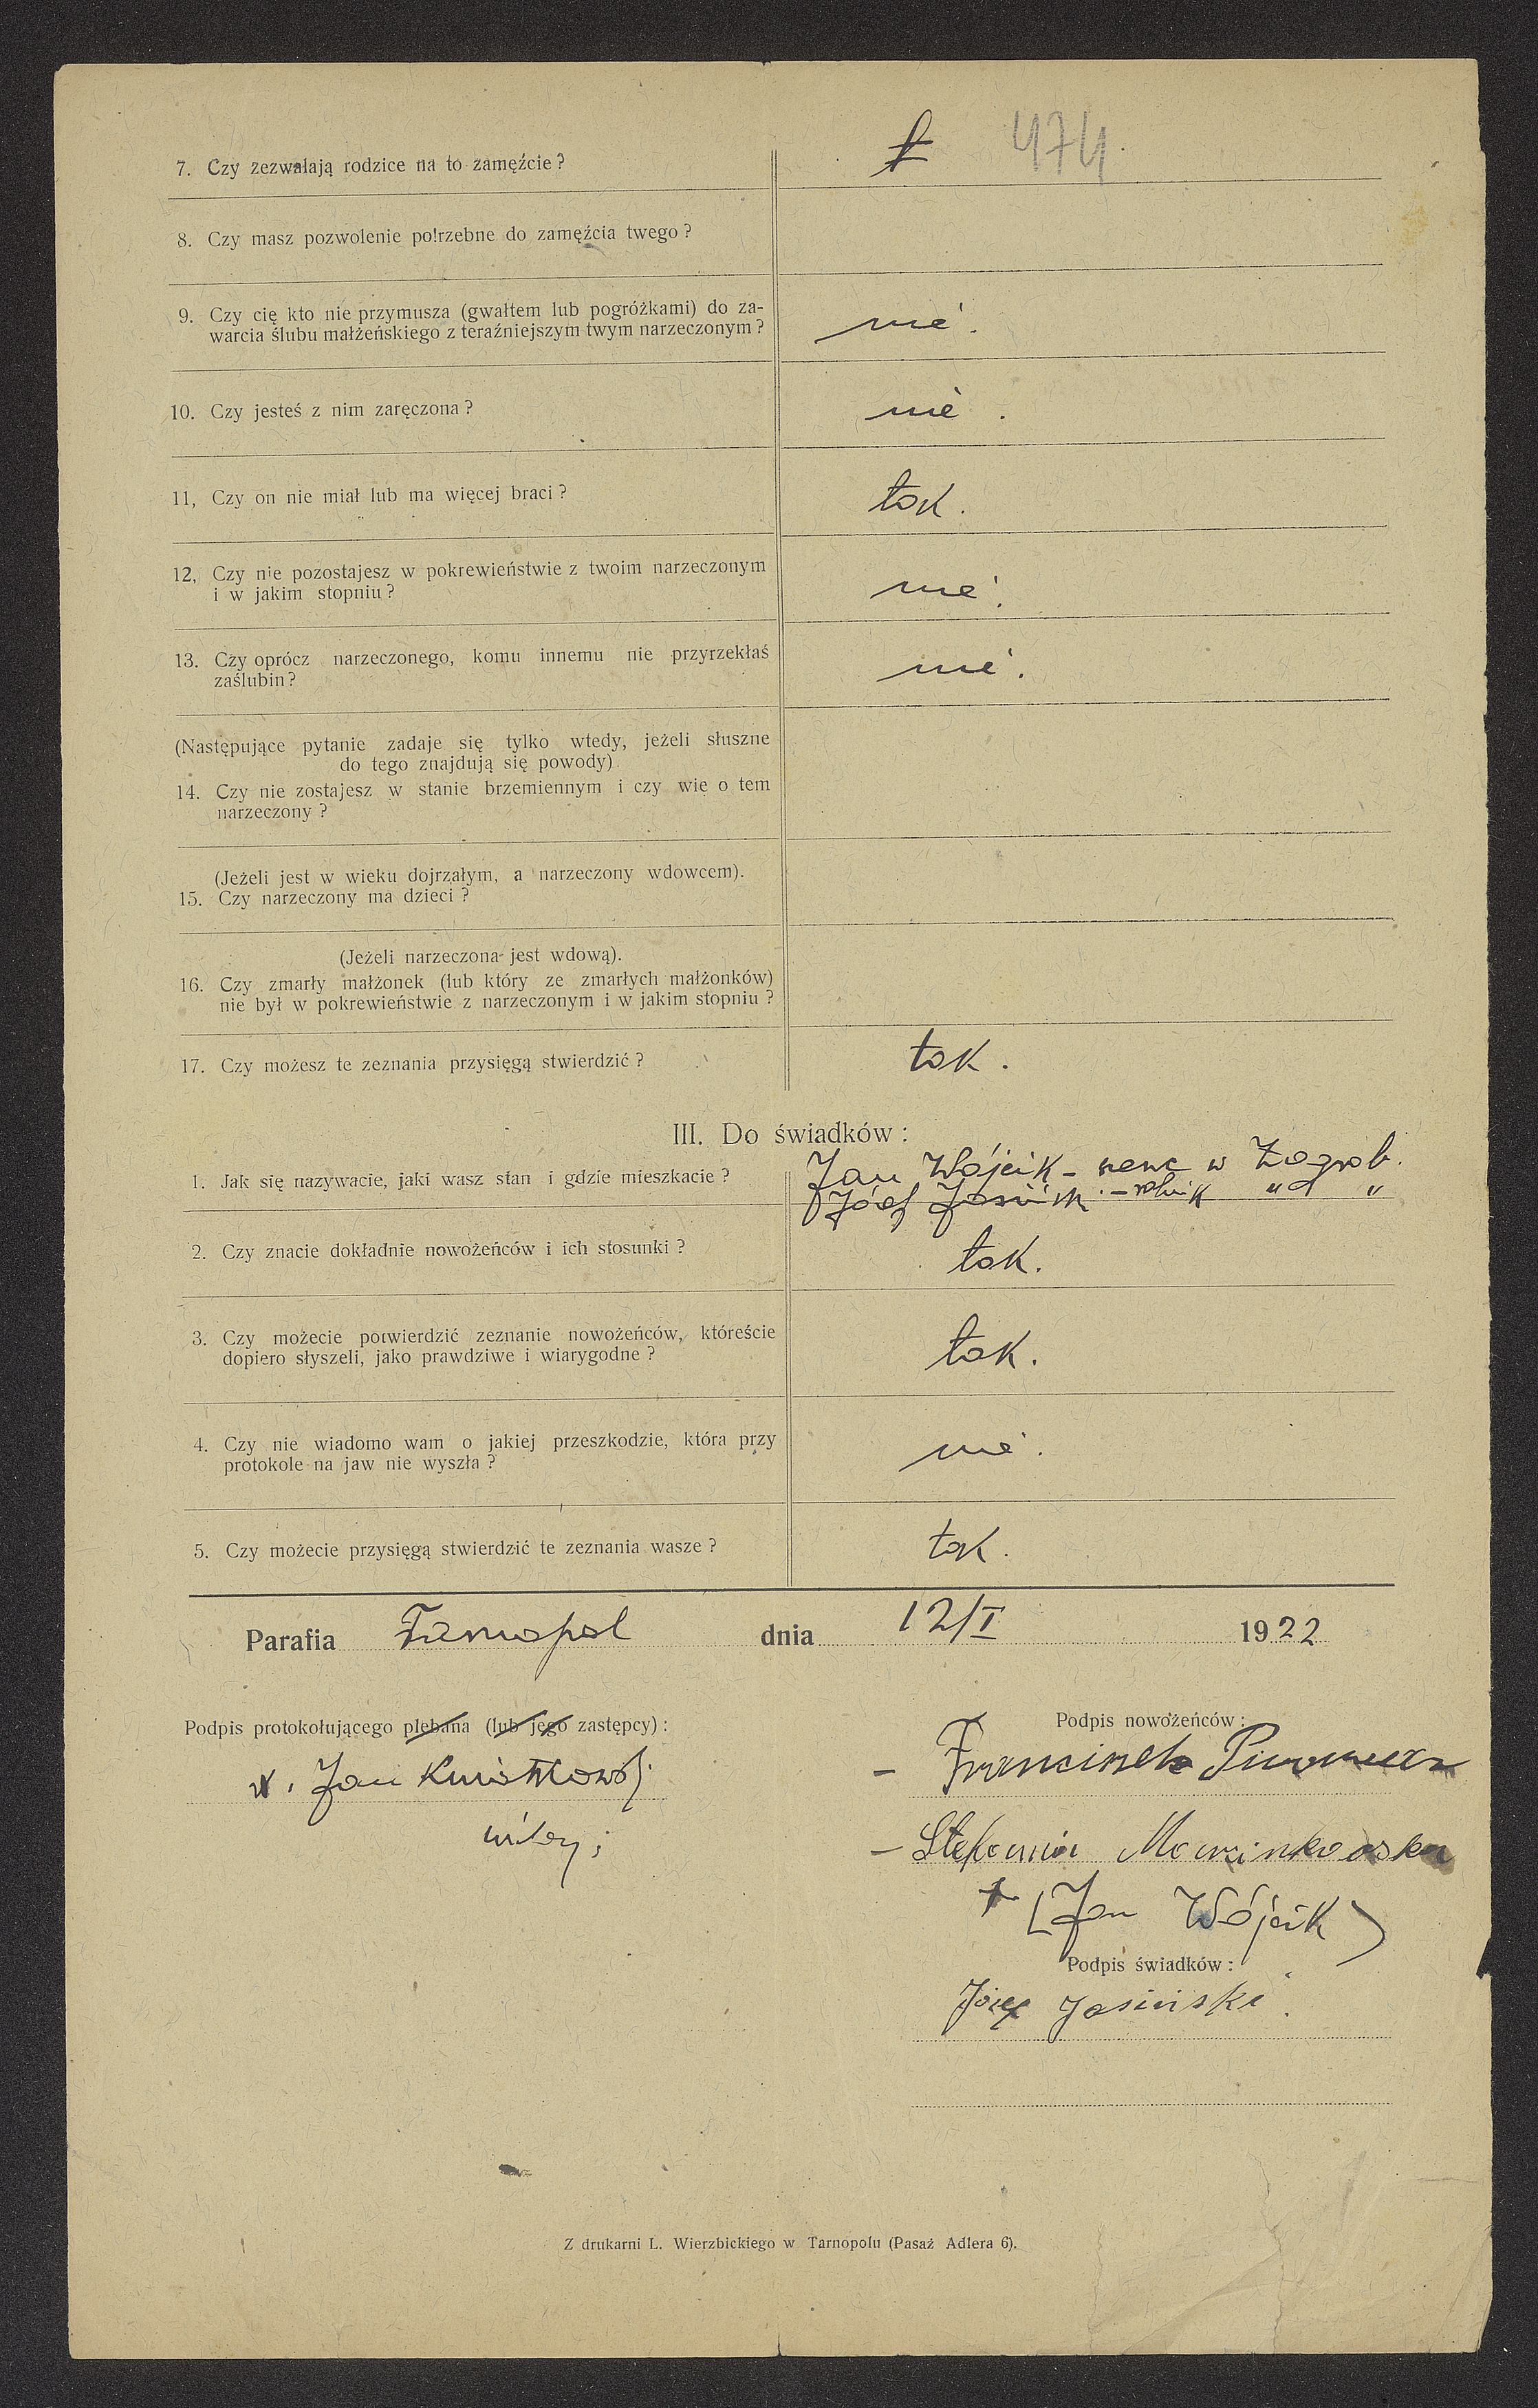 474
7. Czy zezwalają rodzice na to zamęźcie?
8. Czy masz pozwolenie potrzebne do zamęźcia twego?
9. Czy cię kto nie przymusza (gwałtem lub pogróżkami) do za-
warcia ślubu małżeńskiego z teraźniejszym twym narzeczonym?
nie.
10. Czy jesteś z nim zaręczona?
nie.
11, Czy on nie miał lub ma więcej braci?
tak.
12, Czy nie pozostajesz w pokrewieństwie z twoim narzeczonym
i w jakim stopniu?
nie.
13. Czy oprócz narzeczonego, komu innemu nie przyrzekłaś
zaślubin?
nie.
(Następujące pytanie zadaje się tylko wtedy, jeżeli słuszne
do tego znajdują się powody)
14. Czy nie zostajesz w stanie brzemiennym i czy wie o tem
narzeczony?
(Jeżeli jest w wieku dojrzałym, a narzeczony wdowcem).
15. Czy narzeczony ma dzieci?
(Jeżeli narzeczona jest wdową).
16. Czy zmarły małżonek (lub który ze zmarłych małżonków)
nie był w pokrewieństwie z narzeczonym i w jakim stopniu?
17. Czy możesz te zeznania przysięgą stwierdzić?
tak.
III. Do świadków:
1. Jak się nazywacie, jaki wasz stan i gdzie mieszkacie?
Jan Wójcik – w Zagrob.
Józef Jasiński – rolnik " "
2. Czy znacie dokładnie nowożeńców i ich stosunki?
tak.
3. Czy możecie potwierdzić zeznanie nowożeńców, któreście
dopiero słyszeli, jako prawdziwe i wiarygodne?
tak.
4. Czy nie wiadomo wam o jakiej przeszkodzie, która przy
protokole na jaw nie wyszła?
nie.
5. Czy możecie przysięgą stwierdzić te zeznania wasze?
tak.
Parafia Tarnopol dnia 12/I 1922
Podpis protokołującego plebana (lub jego zastępcy):
Jan
Podpis nowożeńców:
– Franciszek
– Stefania Marcinkowska
+ (Jan Wójcik)
Podpis świadków:
Józef Jasiński.
Z drukarni L. Wierzbickiego w Tarnopolu (Pasaż Adlera 6).